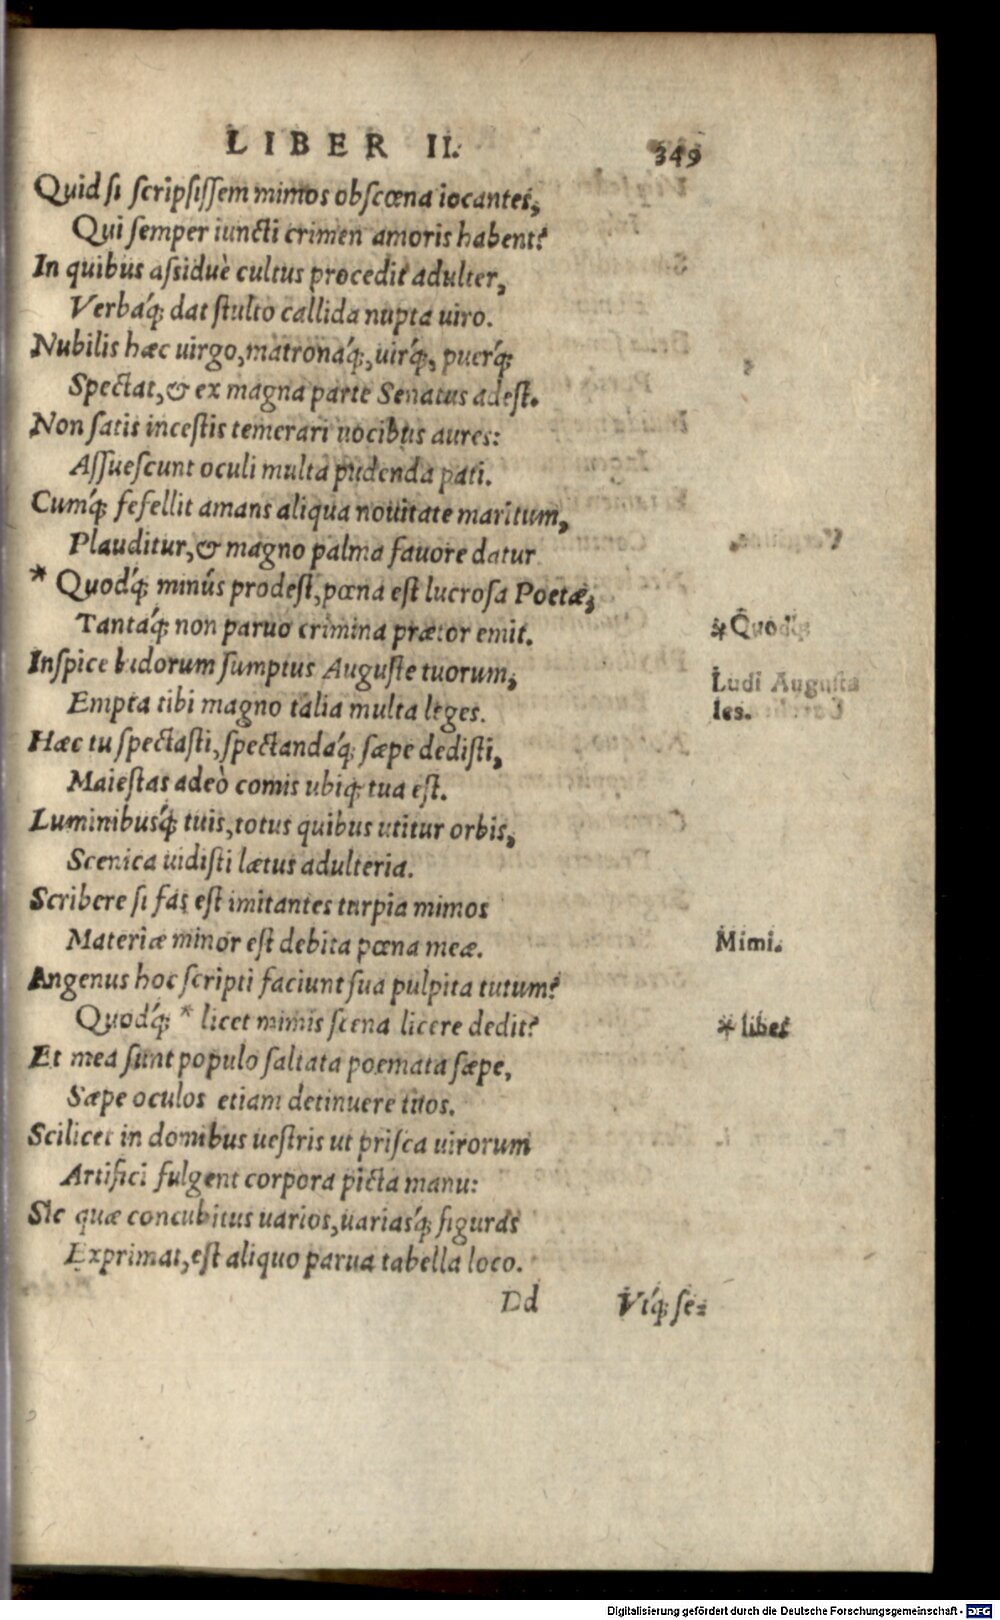 LIBER II. 349
Quid si scripsissem mimos obscœna iocantes,
Qui semper iuncti crimen amoris habent?
In quibus assiduè cultus procedit adulter,
Verbaq́; dat stulto callida nupta uiro.
Nubilis hæc uirgo, matronaq́;, uirq́;, puerq́;
Spectat, & ex magna parte Senatus adest.
Non satis incestis temerari uocibus aures:
Assuescunt oculi multa pudenda pati.
Cumq́; fefellit amans aliqua nouitate maritum,
Plauditur, & magno palma fauore datur
* Quodq́; minús prodest, pœna est lucrosa Poetæ,
Tantaq́; non paruo crimina prætor emit.
* Quodq;
Inspice ludorum sumptus Auguste tuorum,
Ludi Augusta
Empta tibi magno talia multa leges.
les.
Hæc tu spectasti, spectandaq́; sæpe dedisti,
Maiestas adeò comis ubiq; tua est.
Luminibusq́; tuis, totus quibus utitur orbis,
Scenica uidisti lætus adulteria.
Scribere si fas est imitantes turpia mimos
Materiæ minor est debita pœna meæ.
Mimi.
Angenus hoc scripti faciunt sua pulpita tutum?
Quodq́; * licet mimis scena licere dedit?
* libet
Et mea sunt populo saltata poemata sæpe,
Sæpe oculos etiam detinuere tuos.
Scilicet in domibus uestris ut prisca uirorum
Artifici fulgent corpora picta manu:
Sic quæ concubitus uarios, uariasq́; figuras
Exprimat, est aliquo parua tabella loco.
Dd Vtq́; se=
Digitalisierung gefördert durch die Deutsche Forschungsgemeinschaft - DFG